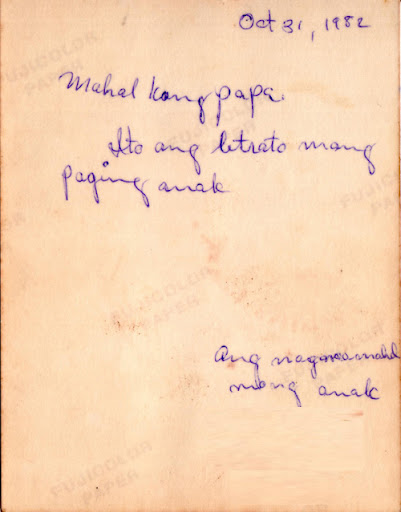 Oct 31, 1982
Mahal kong papa.
Ito ang letrato mong
paging anak
Ang nagmamahal
mong anak
FUJICOLOR
PAPER
FUJICOLOR
PAPER
FUJICOLOR
PAPER
FUJICOLOR
PAPER
FUJICOLOR
PAPER